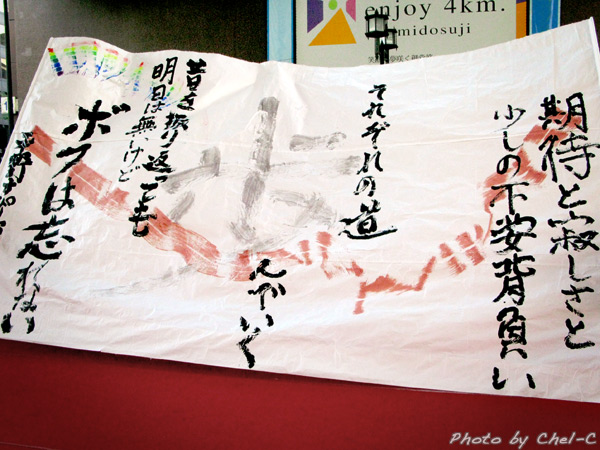 enjoy 4km.
midosuji
期待と寂しさと
少しの不安背負い
それぞれの道
昔を振り返っても
明日は無いけど
ボクは忘れない
Photo by Chel-C